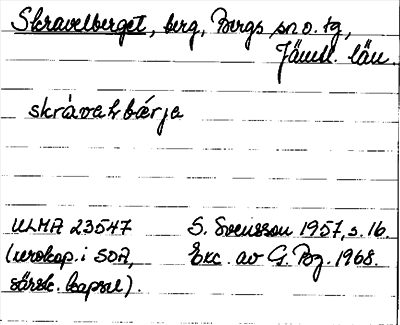 Skravelberget, berg, Bergs sn o. tg,
Jämtl. län.
skràvahbárje
ULMA 23547 S. Svensson 1957, s. 16.
(urokap. i SOA, Exc. av G. Bg. 1968.
särsk. kapsel).